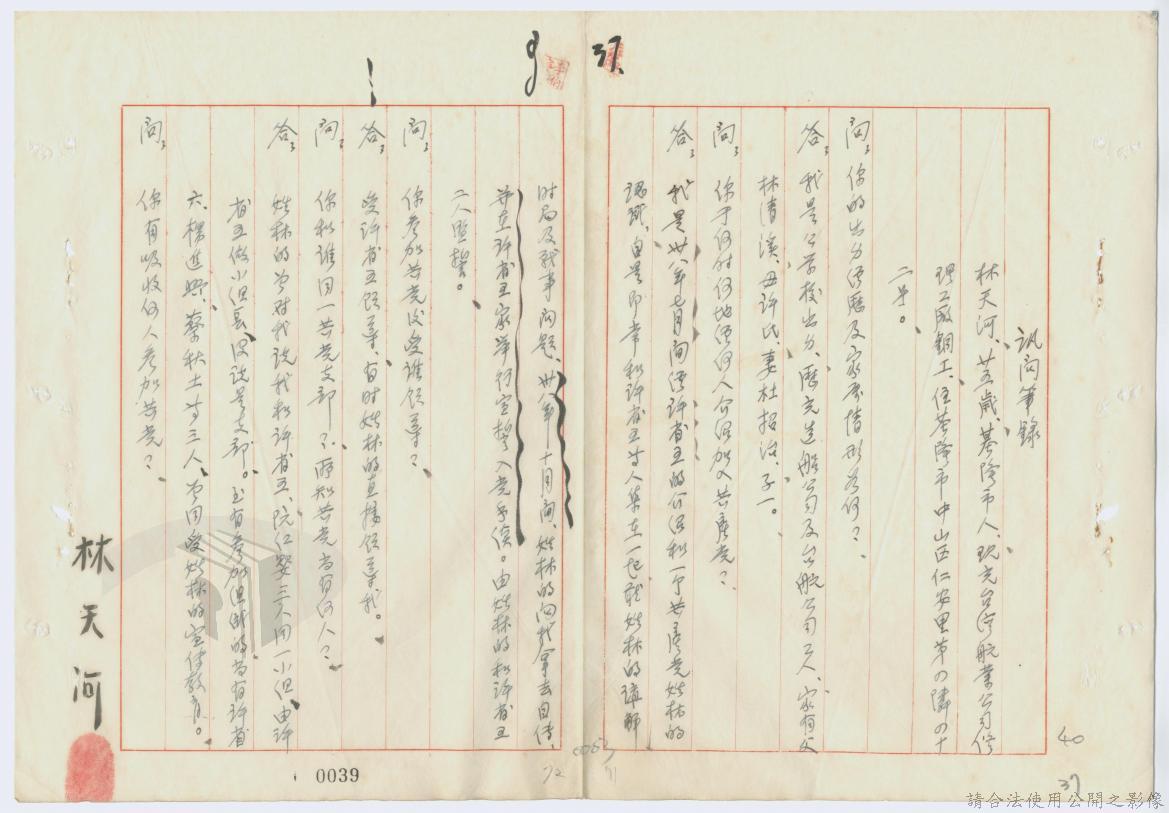 37
訊問筆錄
林天河、廿五歲、基隆市人、現充台灣航業公司修
理工廠銅工、住基隆市中山区仁安里第の隣の十
二号。
問：你的出身經歷及家庭情形为何？
答：我是公学校出身、歷充造船公司及台航公司工人、家有父
林清溪、母許氏、妻杜招治、子一。
問：你于何时何地經何人介紹加入共產党？
答：我是卅八年七月间經許省五的介紹和一个共產党姓林的
認識、自是即常和許省五等人集在一起就姓林的講解
时局及戰事问題、卅八年十月间、姓林的向我拿去自傳、
并在許省五家举行宣誓入党手續。由姓林的和許省五
二人監誓。
問：你参加共党後受誰領導？
答：受許省五領導、有时姓林的直接領導我。
問：你和誰同一共党支部？所知共党尚有何人？
答：姓林的曾对我說我和許省五、阮红嬰三人同一小但、由許
省五做小但長、没説是支部。至有参加但織的尚有許省
六、楊進興、蔡秋土等三人、曾同受姓林的宣傳教育。
問：你有吸收何人参加共党？
林天河
0039
40
37
72
71
請合法使用公開之影像